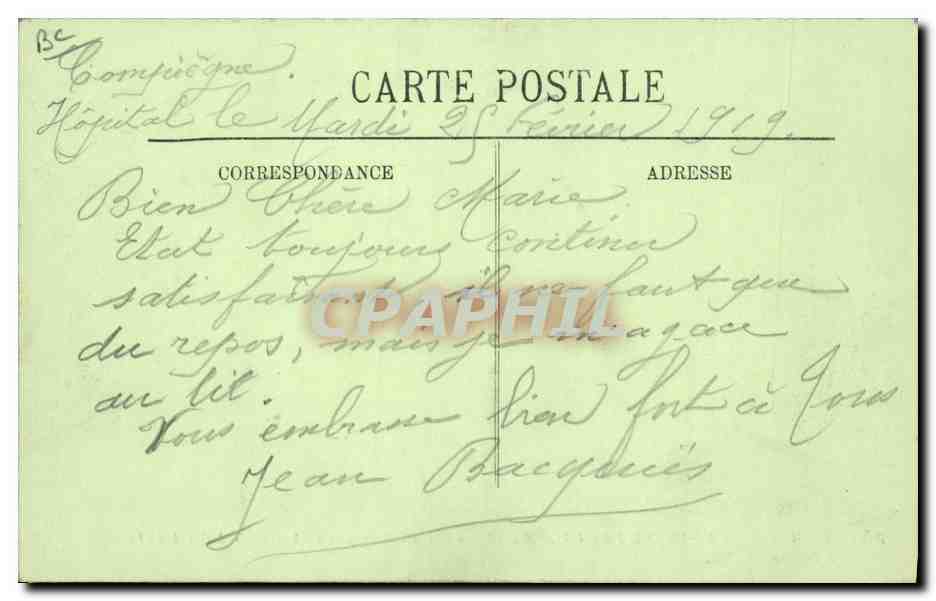 BC
Compiègne.
CARTE POSTALE
Hôpital le Mardi 25 Février 1919.
CORRESPONDANCE
ADRESSE
Bien Chère Marie.
Etat toujours continu
satisfaisant il ne faut que
du repos, mais je m'agace
au lit.
Vous embrasse bien fort à Tous
Jean
CPAPHIL